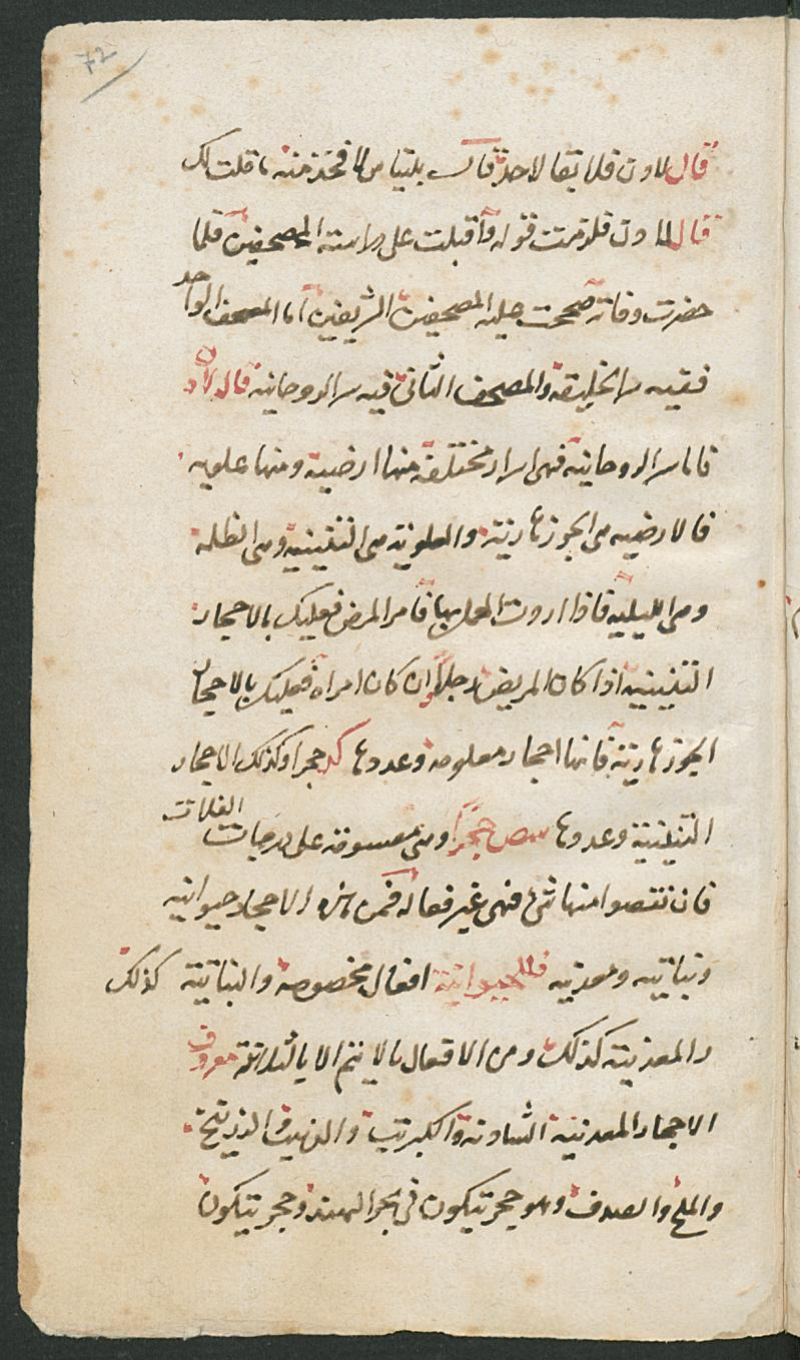 72
قال لاون فلا بقا لاحد قال بلنياس لا فخذ منه ما قلت لك
قال لاون فلزمت قوله واقبلت على دراسته المصحفين فلما
حضرت وفاته صححت عليه المصحفين الشريفين اما المصحف الواحد
ففيه سر الخليقه والمصحف الثانى فيه سر الروحانيه قال لاون
فاما سر الروحانيه فهى اسرار مختلفه منها ارضية ومنها علويه
فالارضيه هى الجوزهارية والعلوية هى التنينية وهى الظله
وهى الليليه فاذا اردت العمل بها فامر المرض فعليك بالاحجار
التنينية اذا كان المريض رجلا وان كان امراه فعليك بالاحجار
الجوزهارية فانها احجار معلومه وعددها كد حجرا وكذلك الاحجار
التنينية وعددها حجرا وهى مقسومه على درجات الفلات
فان نقصوا منها شئ فهى غير فعاله فمن هذه الاحجار حيوانيه
ونباتيه ومعدنيه فللحيوانية افعال مخصوصه والنباتية كذلك
والمعدنية كذلك ومن الافعال ما لا يتم الا بالثلاثة معروف
الاحجار المعدنية الشادنة والكبريت والذهب والزرنيخ
والملح والصدف وهو حجر يتكون فى بحر الهند وحجر يتكون